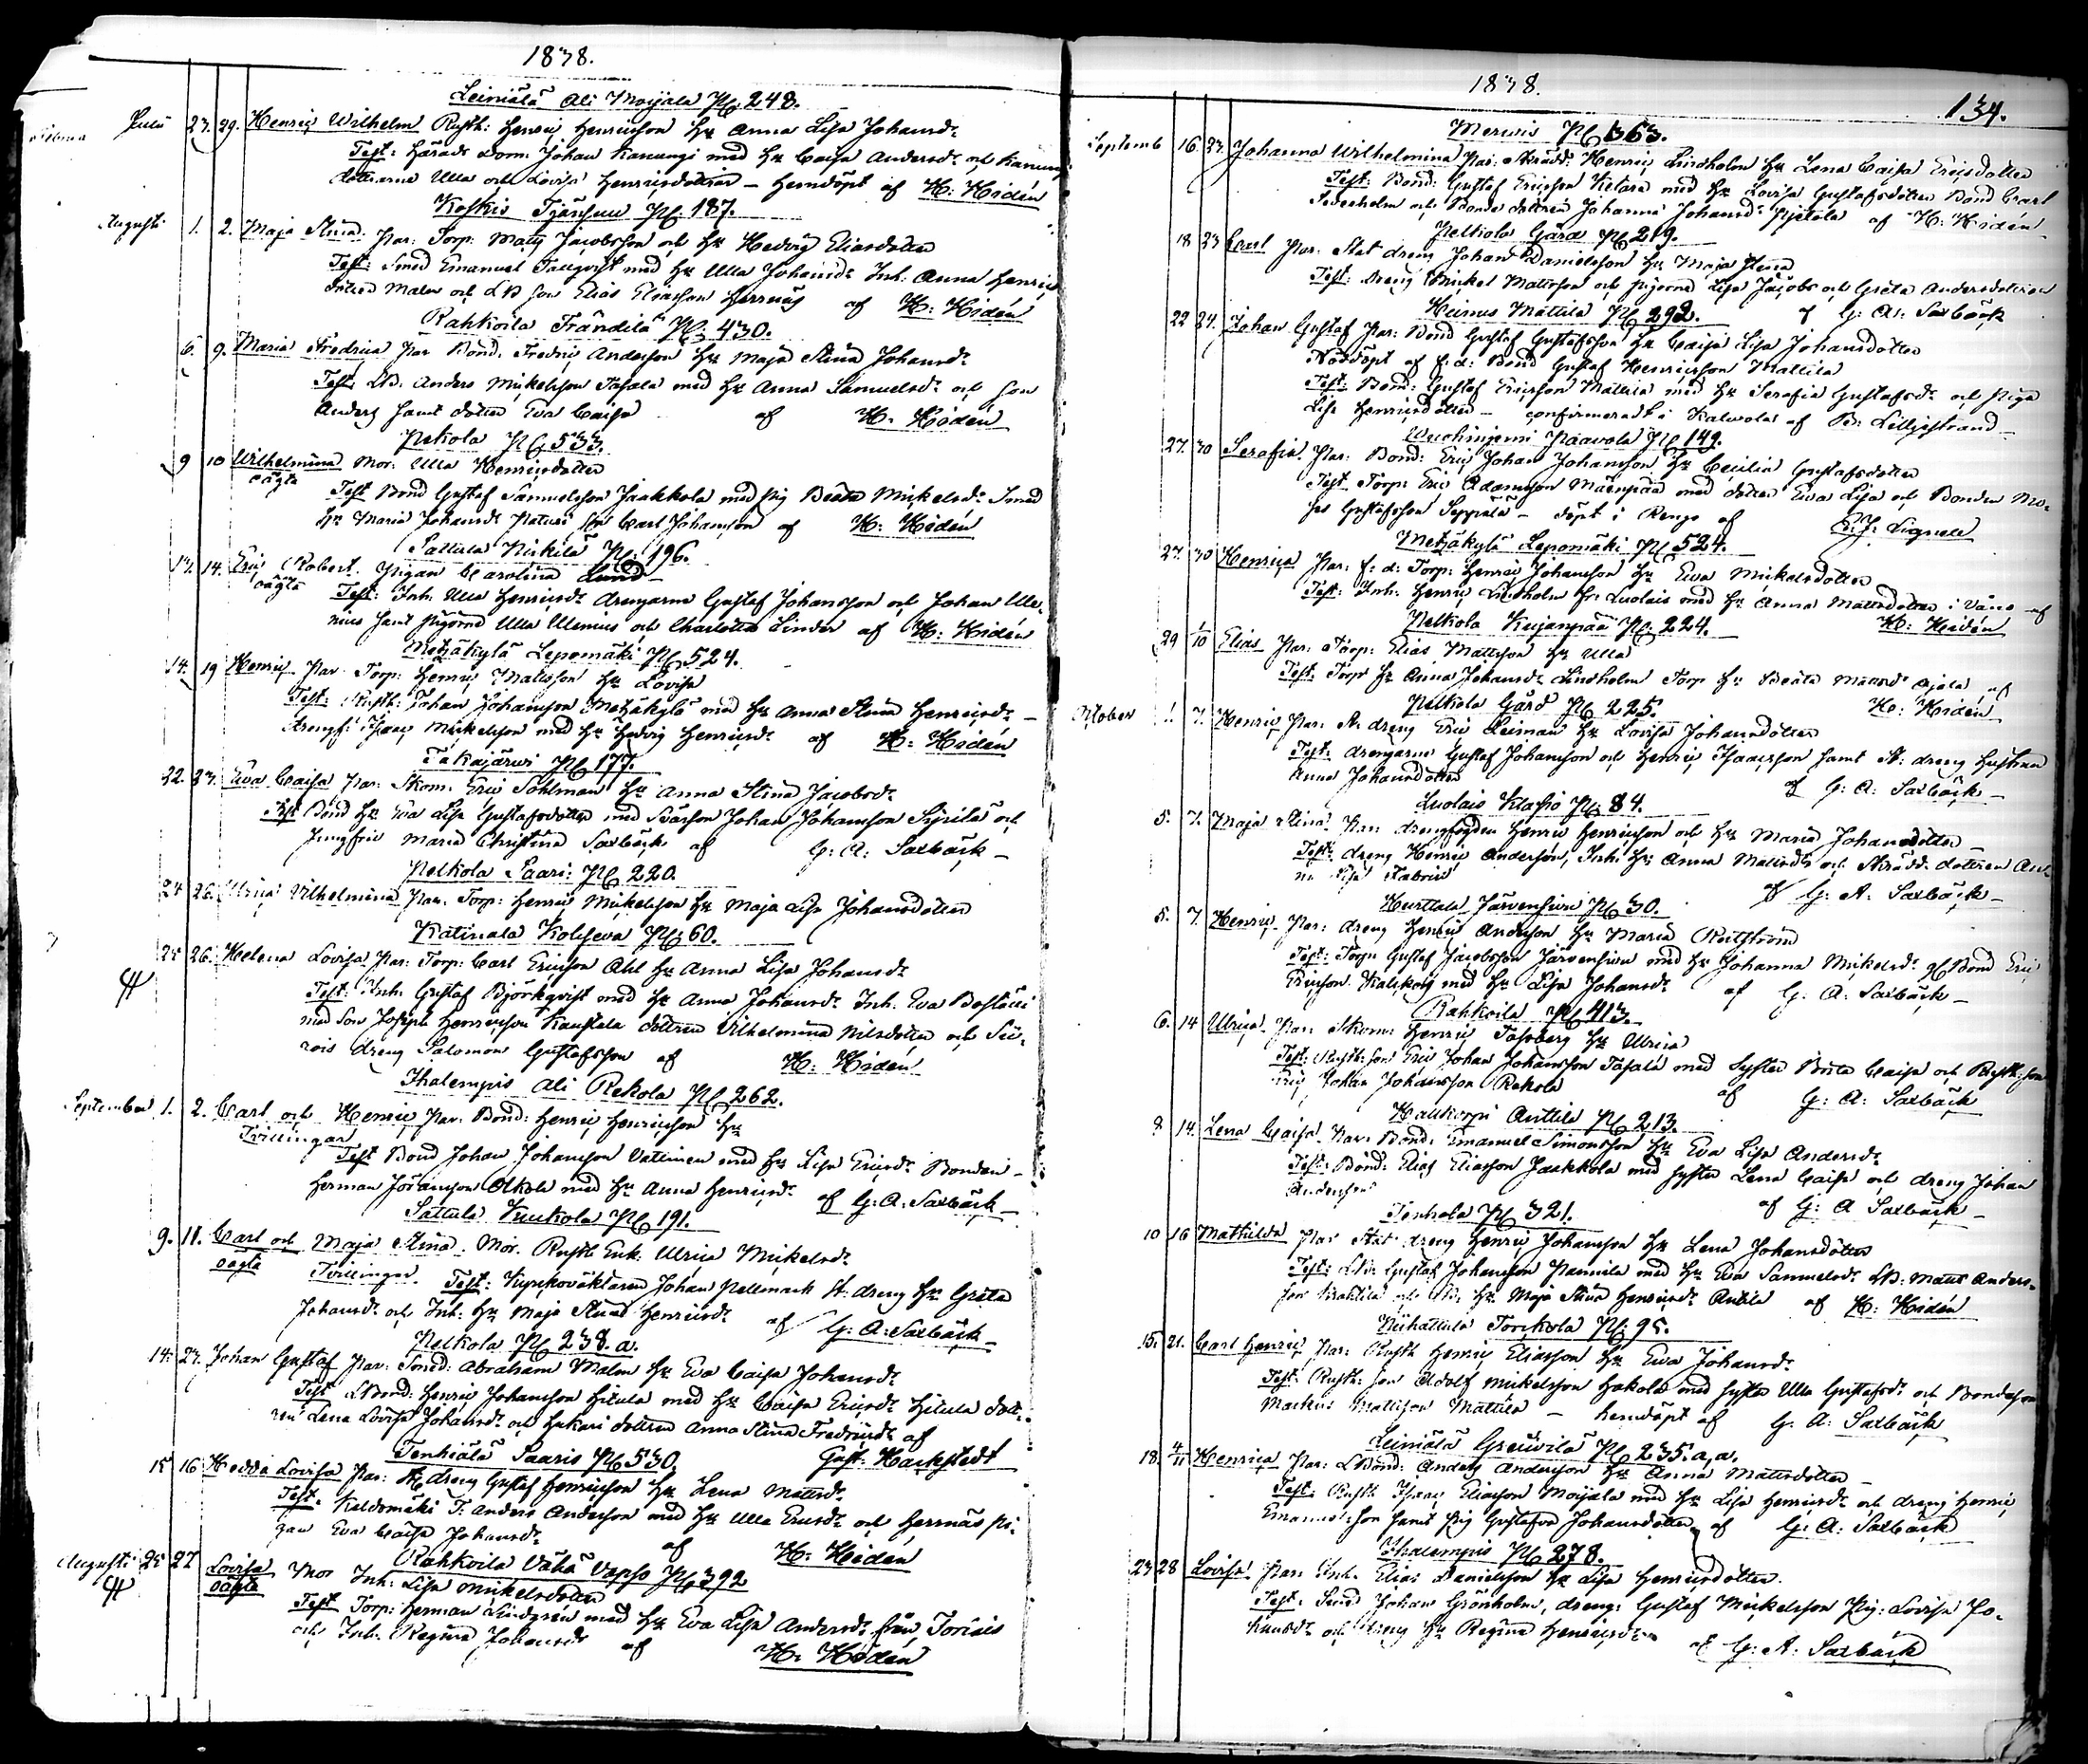 1838.
Leiniälä Ali Moijala Pg. 248.
Julii 23. 29. Henric Wilhelm Rusth: Henric Henricsson Hu Anna Lisa Johansdr
Test: Härads Dom. Johan Kanungi med Hu Caisa Andersdr och
döttrarne Ulla och Lovisa Henricsdöttrar – hemdöpt af H: Hidén
Koskis Pg. 187.
Augusti 1. 2. Maja Stina. Par: Torp: Matts Jacobsson och Hu Hedvig Eliasdotter
Test: Smed Emanuel Tallqvist med Hu Ulla Johansdr Inh: Anna Henrics
dotter Malm och LB son Elias Eliasson Herrnäs af H: Hidén
Rahkoila Frändilä Pg. 430.
6. 9. Maria Fredrica Par Bond. Fredric Andersson Hu Maja Stina Johansdr
Test: LB. Anders Mickelsson Tasala med Hu Anna Samuelsdr och son
Anders samt dotter Eva Caisa af H: Hidén
Pekola Pg 533.
9 10 Wilhelmina Mor: Ulla Henricsdotter
oägta
Test Bond Gustaf Samuelsson Jaakkola med pig Beata Mickelsdr Smed
Hu Maria Johansdr Paturi son Carl Johansson af H: Hidén
Sattula Nikilä Pg. 196.
13. 14. Eric Robert. Pigan Carolina Lund
oägta
Test: Inh: Ulla Henricsdr drengarne Gustaf Johansson och Johan Ule-
nius samt pigorna Ulla Ulenius och Charlotta Linder af H: Hidén
Metsäkylä Lepomäki Pg 524.
14. 19 Henric Par Torp: Henric Mattsson Hu Lovisa
Test: Rusth: Johan Johansson Metsäkylä med Hu Anna Stina Henricsdr –
drengf: Isaac Mickelsson med Hu Hedvig Henricsdr af H: Hidén
Takajärvi Pg 177.
22. 23. Eva Caisa Par: Skom: Eric Sohlman Hu Anna Stina Jacobsdr
Test Bond Hu Eva Lisa Gustafsdotter med Johan Johansson Sipilä och
Jungfru Maria Christina Saxbäck af G: A: Saxbäck –
Pelkola Saari: Pg 220.
24 26. Ulrica Vilhelmina Par. Torp: Henric Mickelsson Hu Maja Lisa Johansdotter
Katinala Pg. 60.
25 26. Helena Lovisa Par: Torp: Carl Ericsson Ahl Hu Anna Lisa Johansdr
Test: Inh: Gustaf Björkqvist med Hu Anna Johansdr Inh. Eva
med son Joseph Henricsson Kaustala dottren Vilhelmina Nilsdotter och
dreng Salomon Gustafsson af H: Hidén
Ihalempis Ali Rekola Pg 262.
September 1. 2. Carl och Henric Par. Bond: Henric Henricsson Hu
Tvillingar
Test Bond Johan Johansson Vatinen med Hu Lisa Ericsdr Bonden –
Herman Johansson Olkola med Hu Anna Henricsdr af G: A: Saxbäck –
Sattula Kuukola Pg 191.
9. 11. Carl och Maja Stina. Mor. Rusth Enk. Ulrica Mickelsdr
oägta Tvillingar. Test: Kyrkoväktaren Johan Pellemark St: dreng Hu Greta
Johansdr och Inh. Hu Maja Stina Henricsdr af G: A: Saxbäck –
Pelkola Pg 238. a.
14. 23. Johan Gustaf Par: Smed: Abraham Malm Hu Eva Caisa Johansdr
Test LBond: Henric Johansson Hitula med Hu Caisa Ericsdr Hitula dott-
ren Lena Lovisa Johansdr och Hakari dottren Anna Stina Fredricsdr af
Tenhiälä Saaris Pg 530. Gust: Hackstedt
15 16 Hedda Lovisa Par: St dreng Gustaf Henricsson Hu Lena Mattsdr
Test. Kaldomäki T. Anders Andersson med Hu Ulla Ericsdr och Herrnäs pi-
gan Eva Caisa Johansdr af H: Hidén
Rahkoila Vähä Vappo Pg 392
Augusti 25 27 Lovisa Mor Inh: Lisa Mickelsdotter
oägta
Test Torp: Herman Lindgrén med Hu Eva Lisa Andersdr från Torius
och Inh: Regina Johansdr af H: Hidén
1838.
134.
Merwis Pg 363.
Septemb 16. 23. Johanna Wilhelmina Par: Skrädd: Henric Lindholm Hu Lena Caisa Ericsdotter
Test: Bond: Gustaf Ericsson Ketara med Hu Lovisa Gustafsdotter Bond Carl
Söderholm och Bonde dottren Johanna Johansdr af H: Hidén
Pelkola Gård Pg 219.
18 23 Carl Par. Stat dreng Johan Danielsson Hu Maja Stina
Test: dreng Mickel Mattsson och pigorna Lisa Jacobs och Greta Andersdöttrar
Heinus Mattila Pg 292. af G: A: Saxbäck
22 24. Johan Gustaf Par: Bond Gustaf Gustafsson Hu Caisa Lisa Johansdotter
Nöddöpt af f. d: Bond Gustaf Henricsson Mattila
Test: Bond: Gustaf Ericsson Mattila med Hu Serafia Gustafsdr och Piga
Lisa Henricsdotter – confirmeradt i Kalvola af B: Lilljestrand –
Paavola Pg 149.
27. 30 Serafia Par: Bond: Eric Johan Johansson Hu Cecilia Gustafsdotter
Test Torp: Eric Adamsson Mäenpää med dotter Eva Lisa och Bonden Mo-
ses Gustafsson Seppälä – döpt i Rengo af C: J: Lignell
Metsäkylä Lepomäki Pg 524.
27. 30 Henrica Par: f. d: Torp: Henric Johansson Hu Eva Mickelsdotter
Test: Inh: Henric Lindholm fr: Luolais med Hu Anna Mattsdotter i Vånå af
Pelkola Kujanpää Pg. 224. H: Hidén
29 1/10 Elias Par: Torp: Elias Mattsson Hu Ulla
Test: Torp Hu Anna Johansdr Lindholm Torp Hu Beata Mattsdr Ojala af
Pelkola Gård Pg 225. H: Hidén
October 1. 7. Henric Par: St. dreng Eric Leiman Hu Lovisa Johansdotter
Test: drengarne Gustaf Johansson och Henric Isaacsson samt St: dreng hustrun
Anna Johansdotter af G: A: Saxbäck –
Luolais Klasio Pg: 84.
5. 7. Maja Stina. Par: drengfogden Henric Henricsson och Hu Maria Johansdotter –
Test. dreng Henric Andersson, Inh: Hu Anna Mattsdr och Skrädd: dottren An-
na Lisa Fabrin af G: A: Saxbäck –
Hurttala Järvensivu Pg 30.
5. 7. Henric Par: dreng Henric Andersson Hu Maria
Test: Torp: Gustaf Jacobsson Järvensivu med Hu Johanna Mickelsdr Bond Eric
Ericsson med Hu Lisa Johansdr af G: A: Saxbäck –
Rahkoila Pg 413.
6. 14 Ulrica Par: Skom: Henric Forsberg Hu Ulrica
Test: Rusth: son Eric Johan Johansson Tasala med syster Brita Caisa och Rusth: son
Eric Johan Johansson Rekola af G: A: Saxbäck
Haukorpi Anttila Pg 213.
8 14. Lena Caisa Par. Bond. Emanuel Simonsson Hu Eva Lisa Andersdr
Test: Bond: Elias Eliasson Jaakkola med syster Lena Caisa och dreng Johan
Andersson af G: A Saxbäck –
Tenhola Pg 321.
10 16 Mathilda Par Stat dreng Henric Johansson Hu Lena Johansdotter
Test: LB: Gustaf Johansson Pannila med Hu Eva Samuelsdr LB: Matts Anders-
son och Hu Maja Stina Henricsdr Antila af H: Hidén
Niihattula Torikola Pg. 95.
15. 21. Carl Henric Par: Rusth Henric Eliasson Hu Eva Johansdr
Test: Rusth: son Adolf Mickelsson Hakola med syster Ulla Gustafsdr och Bondeson
Markus Mattsson Mattila – hemdöpt af G: A: Saxbäck
Leiniälä Greuvilä Pg 235. a, a.
18. 4/11 Henrica Par: LBond: Anders Andersson Hu Anna Mattsdotter –
Test: Rusth Isaac Eliasson Moijala med Hu Lisa Henricsdr och dreng Henric
Emanuelsson samt pig Gustava Johansdotter af G: A: Saxbäck
Ihalempis Pg 278.
23 28 Lovisa Par: Inh. Elias Danielsson Hu Lisa Henricsdotter.
Test. Smed Johan Grönholm, dreng: Gustaf Mickelsson Pig: Lovisa Jo-
hansdr och dreng Hu Regina Henricsdr af G: A: Saxbäck